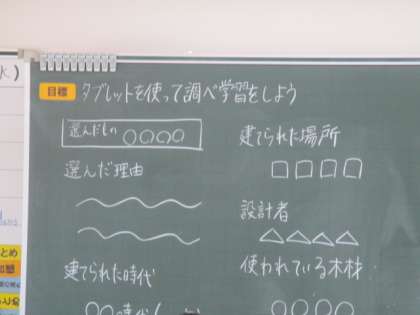 目標 タブレットを使って調べ学習をしよう
選んだもの ○○○○
選んだ理由
建てられた時代
建てられた場所
□□□□
設計者
△△△△
使われている木材
○○○○